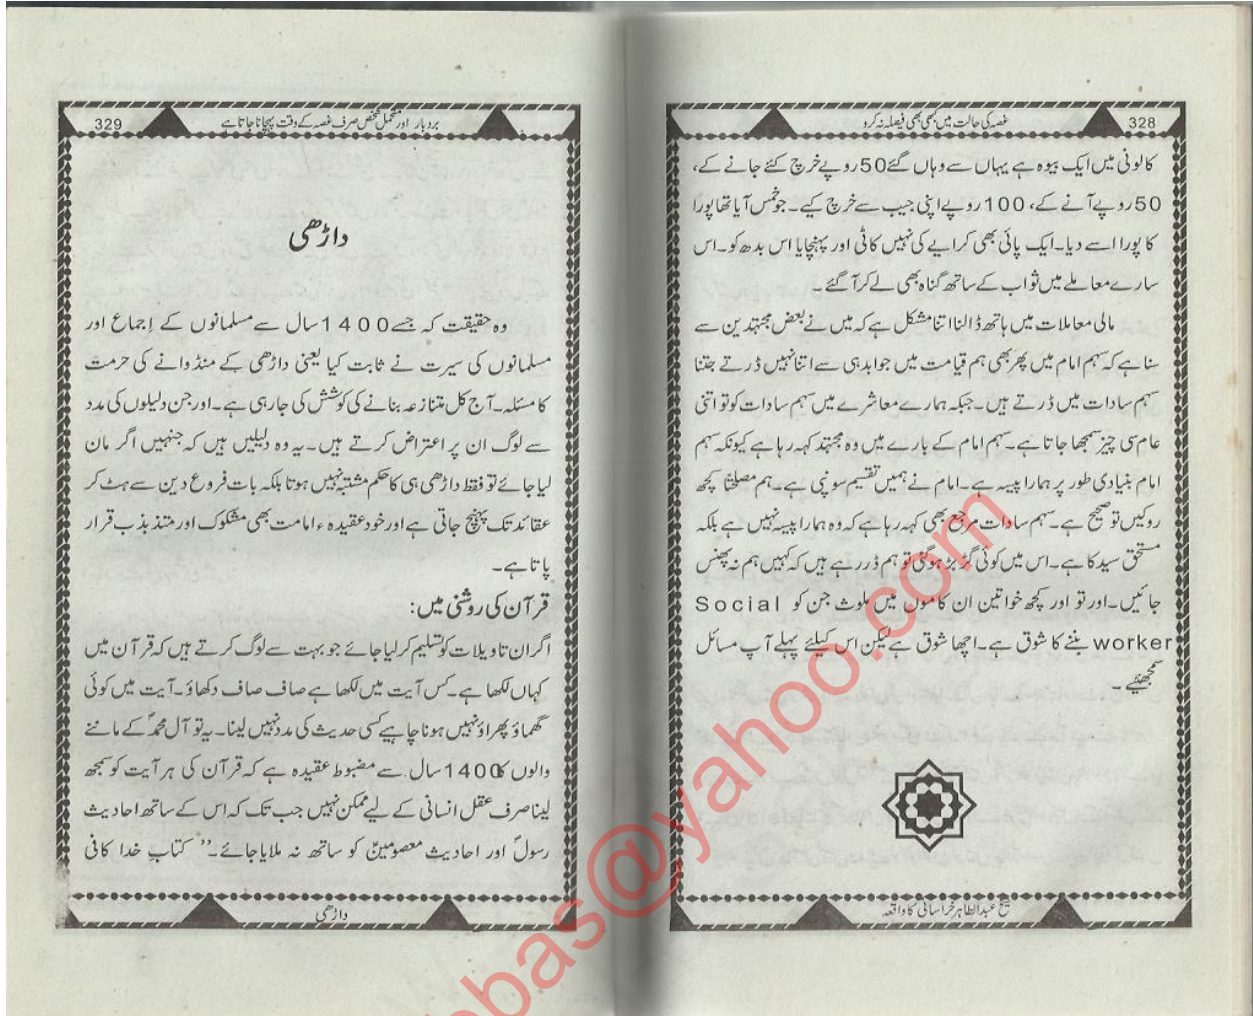 غصہ کی حالت میں کبھی بھی فیصلہ نہ کرو 328
کالونی میں ایک بیوہ ہے یہاں سے وہاں گئے 50 روپے خرچ کئے جانے کے،
50 روپے آنے کے، 100 روپے اپنی جیب سے خرچ کیے۔ جو خمس آیا تھا پورا
کا پورا اسے دیا۔ ایک پائی بھی کرایے کی نہیں کاٹی اور پہنچایا اس بدھ کو۔ اس
سارے معاملے میں ثواب کے ساتھ گناہ بھی لے کر آ گئے۔
مالی معاملات میں ہاتھ ڈالنا اتنا مشکل ہے کہ میں نے بعض مجتہدین سے
سنا ہے کہ سہم امام میں پھر بھی ہم قیامت میں جوابدہی سے اتنا نہیں ڈرتے جتنا
سہم سادات میں ڈرتے ہیں۔ جبکہ ہمارے معاشرے میں سہم سادات کو تو اتنی
عام سی چیز سمجھا جاتا ہے۔ سہم امام کے بارے میں وہ مجتہد کہہ رہا ہے کیونکہ سہم
امام بنیادی طور پر ہمارا پیسہ ہے۔ امام نے ہمیں تقسیم سونپی ہے۔ ہم مصلحتاً کچھ
روکیں تو صحیح ہے۔ سہم سادات مرجع بھی کہہ رہا ہے کہ وہ ہمارا پیسہ نہیں ہے بلکہ
مستحق سید کا ہے۔ اس میں کوئی گڑبڑ ہو گئی تو ہم ڈر رہے ہیں کہ کہیں ہم نہ پھنس
جائیں۔ اور تو اور کچھ خواتین ان کاموں میں ملوث جن کو Social
worker بننے کا شوق ہے۔ اچھا شوق ہے لیکن اس کیلئے پہلے آپ مسائل
سمجھئیے۔
شیخ عبدالطاہر خراسانی کا واقعہ
بردبار اور متحمل شخص صرف غصہ کے وقت پہچانا جاتا ہے 329
داڑھی
وہ حقیقت کہ جسے 1400 سال سے مسلمانوں کے اجماع اور
مسلمانوں کی سیرت نے ثابت کیا یعنی داڑھی کے منڈوانے کی حرمت
کا مسئلہ۔ آج کل متنازعہ بنانے کی کوشش کی جا رہی ہے۔ اور جن دلیلوں کی مدد
سے لوگ ان پر اعتراض کرتے ہیں۔ یہ وہ دلیلیں ہیں کہ جنہیں اگر مان
لیا جائے تو فقط داڑھی ہی کا حکم مشتبہ نہیں ہوتا بلکہ بات فروع دین سے ہٹ کر
عقائد تک پہنچ جاتی ہے اور خود عقیدہ ء امامت بھی مشکوک اور متذبذب قرار
پاتا ہے۔
قرآن کی روشنی میں:
اگر ان تاویلات کو تسلیم کر لیا جائے جو بہت سے لوگ کرتے ہیں کہ قرآن میں
کہاں لکھا ہے۔ کس آیت میں لکھا ہے صاف صاف دکھاؤ۔ آیت میں کوئی
گھماؤ پھراؤ نہیں ہونا چاہیے کسی حدیث کی مدد نہیں لینا۔ یہ تو آل محمدؐ کے ماننے
والوں کا 1400 سال سے مضبوط عقیدہ ہے کہ قرآن کی ہر آیت کو سمجھ
لینا صرف عقل انسانی کے لیے ممکن نہیں جب تک کہ اس کے ساتھ احادیث
رسولؐ اور احادیث معصومینؑ کو ساتھ نہ ملایا جائے۔ ’’کتاب خدا کافی
داڑھی
bas@yahoo.com